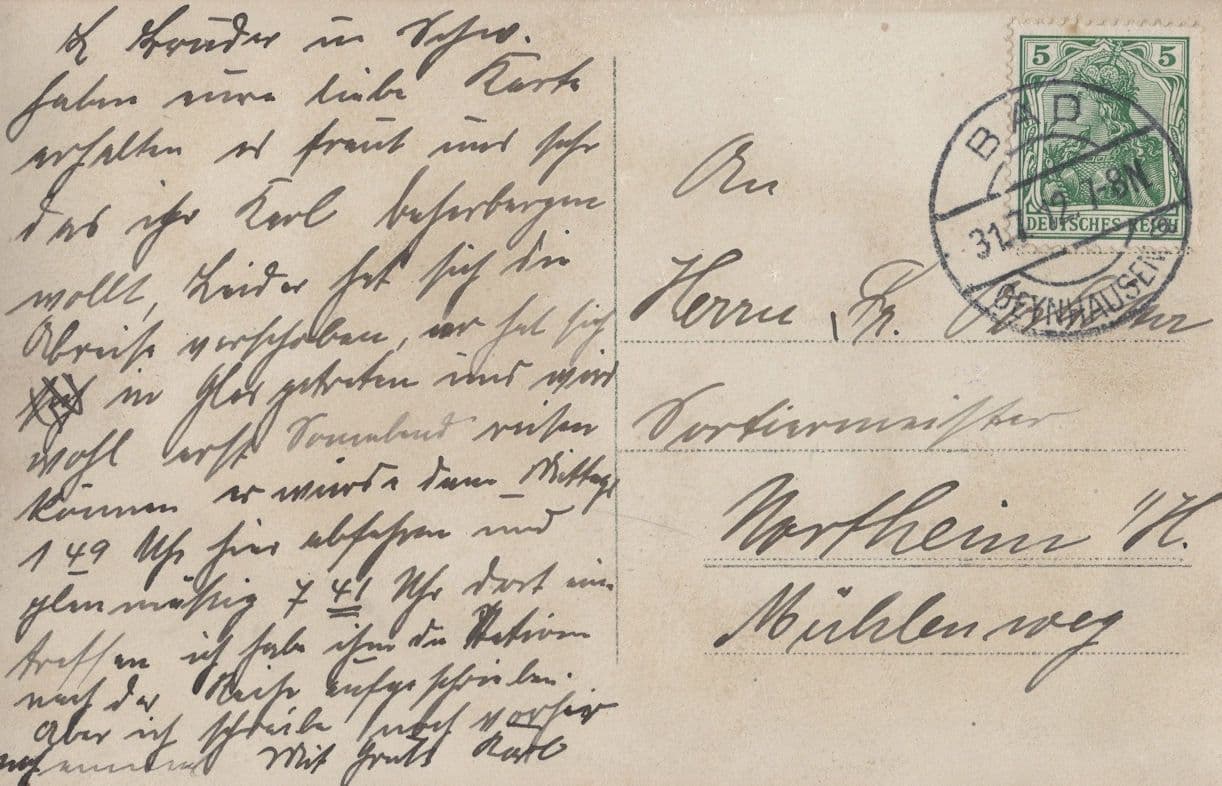 L Bruder u Schw.
haben eure liebe Karte
erhalten es freut uns sehr
das ihr Karl beherbergen
wollt, Leider hat sich die
Abreise verschoben, er hat sich
in Glas getreten und wird
wohl erst Sonnabend reisen
können er würde dann Mittags
1 49 Uhr hier abfahren und
planmäßig 7 41 Uhr dort ein
treffen ich habe ihm die Station
nach der Reihe aufgeschrieben.
Aber ich schreibe noch vorher
Mit Gruß Karl
5 5
DEUTSCHES REICH
BAD
31.7.12. 7-8N
OEYNHAUSEN
An
Herrn Fr.
Sortiermeister
Northeim i/H.
Mühlenweg